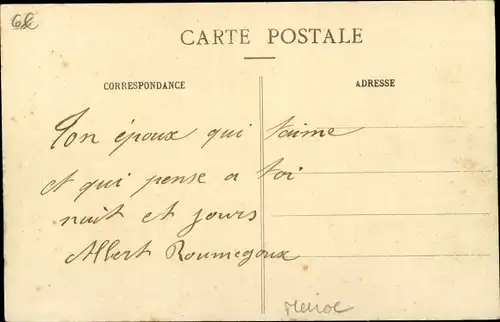 6
CARTE POSTALE
CORRESPONDANCE
ADRESSE
Ton époux qui t'aime
et qui pense a toi
nuit et jours
Albert Roumegoux